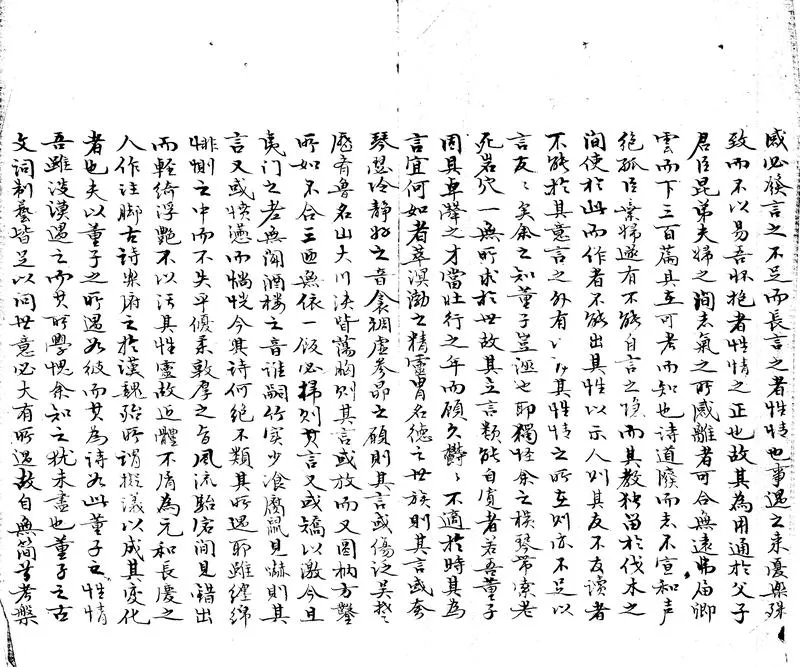 感必發言之不足而長言之者性情也事遇之來憂樂殊
致而不以易吾懷抱者性情之正也故其為用通於父子
君臣昆弟夫婦之間志氣之所感離者可合無遠弗屆卿
雲而下三百篇具在可考而知也詩道廢而志不宣和声
絕孤臣棄婦遂有不能自言之隱而其教独留於伐木之
間使於此而作者不能出其性以示人則其友不友讀者
不能於其意言之外有以得其性情之所在則亦不足以
言友友矣余之知董子豈洭也耶獨怪余之樸琴帶索老
死岩穴一無所求於世故其立言類能自寛者若吾董子
因具卓犖之才當壮行之年而頋久欝欝不適於時其為
言宜何如者萃溟渤之精靈冑名德之世族則其言或夸
琴瑟冷靜好之音衾裯虛參昴之頋則其言或傷泛吳楚
歷齊魯名山大川决眥蕩胸則其言或放而又圆枘方鑿
所如不合三匝無依一飯必掃則其言又或矯以激今且
夷门之老無闻酒楼之音誰嗣竹实少飡腐鼠見嚇則其
言又或愤懑而惝恍今其詩何絕不類其所遇耶雖纏綿
悱惻之中而不失乎優柔敦厚之旨風流駘宕间見錯出
而輕綺浮艷不以汚其性靈故近體不屑為元和長慶之
人作注脚古詩樂府之於漢魏殆所謂擬議以成其变化
者也夫以董子之所遇如彼而其為詩如此董子之性情
吾雖淺漠遇之而其所學愧余知之犹未盡也董子之古
文詞制藝皆足以问世意必大有所遇故自無简兮考槃